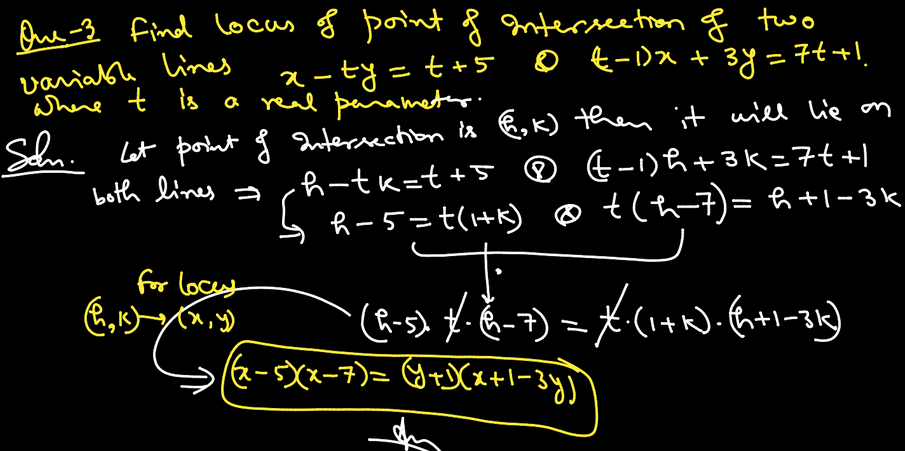 Que-3 Find locus of point of intersection of two
variable lines x - ty = t + 5 & (t-1)x + 3y = 7t + 1.
where t is a real parameter.
Soln. Let point of intersection is (h, k) then it will lie on
both lines ⇒ h - tk = t + 5 & (t-1)h + 3k = 7t + 1
h - 5 = t(1+k) & t(h-7) = h + 1 - 3k
for locus
(h, k) → (x, y)
(h-5). t. (h-7) = t. (1+k). (h+1-3k)
(x-5)(x-7) = (y+1)(x+1-3y)